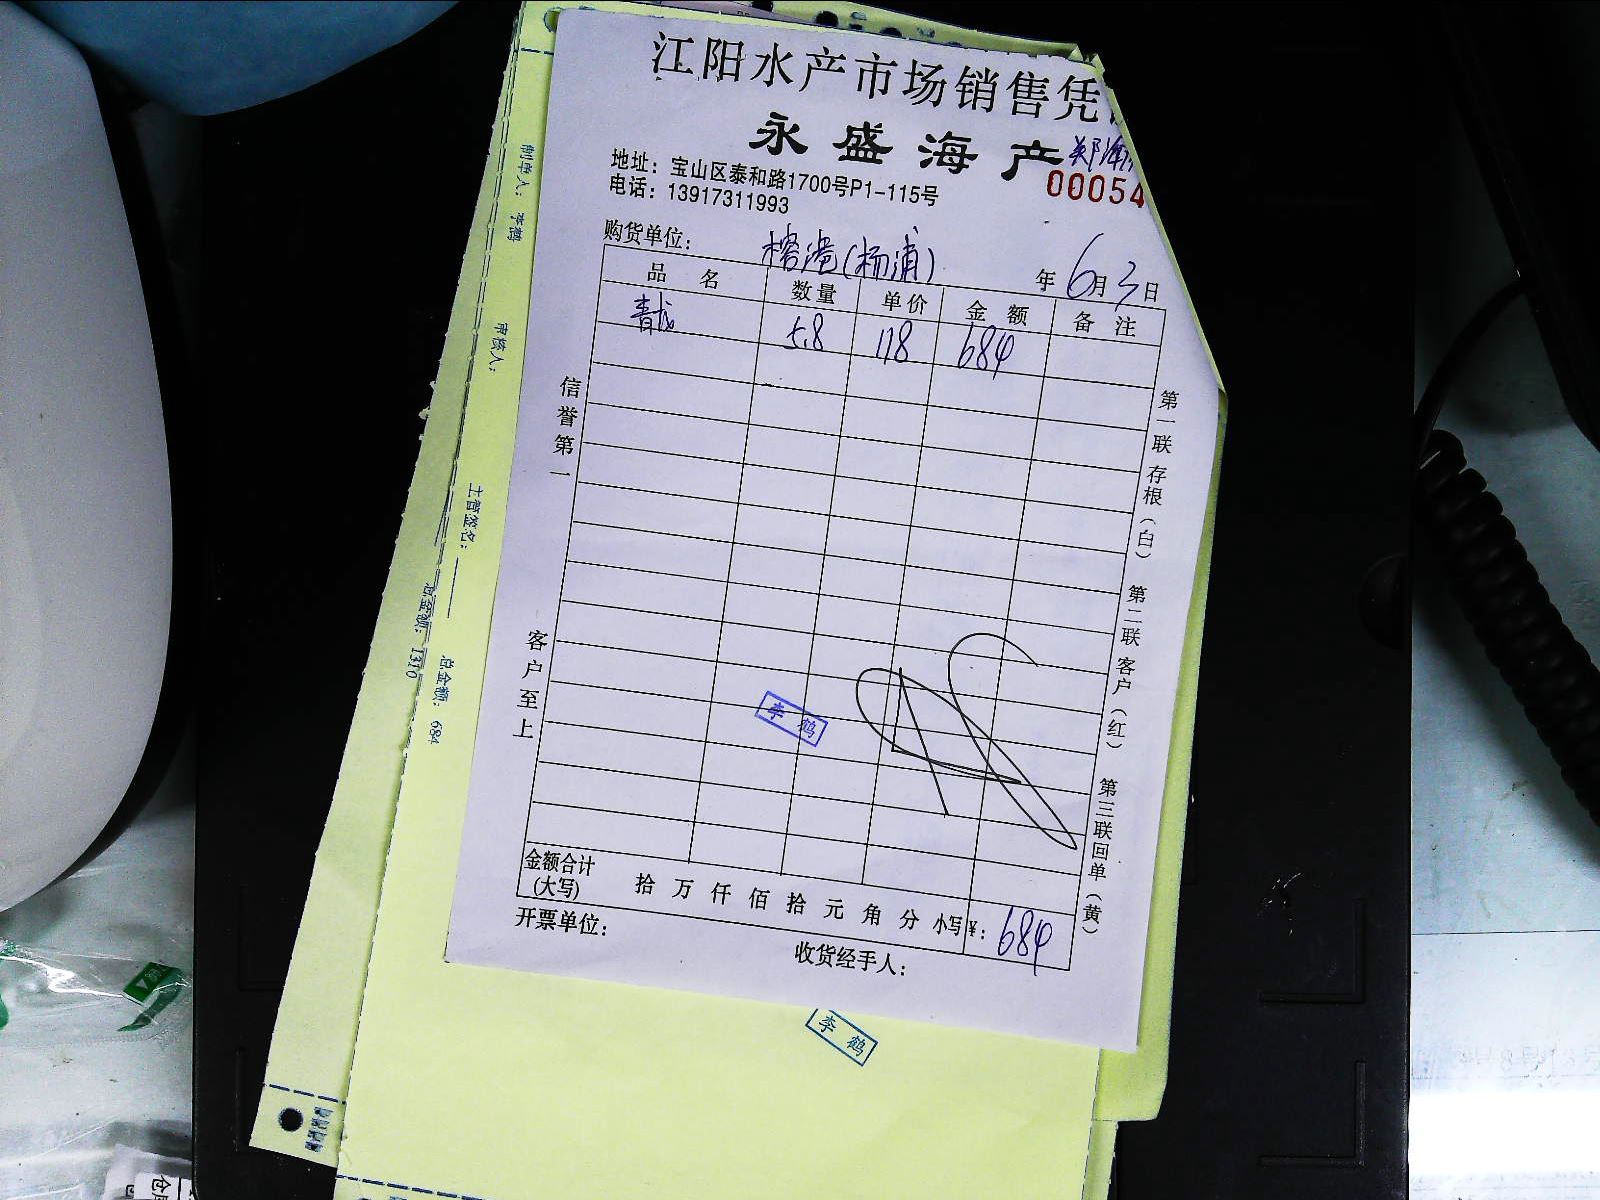 江阳水产市场销售凭
永盛海产
00054
地址：宝山区泰和路1700号P1-115号
电话：13917311993
购货单位：榕港(杨浦) 年6月3日
品名 数量 单价 金额 备注
5.8 118 684
信誉第一
客户至上
第一联存根（白） 第二联客户（红） 第三联回单（黄）
李鹤
金额合计(大写) 拾万仟佰拾元角分 小写¥：684
开票单位： 收货经手人：
李鹤
制单人：李鹤
审核人：
主管签名：
总金额：684
总金额：1310